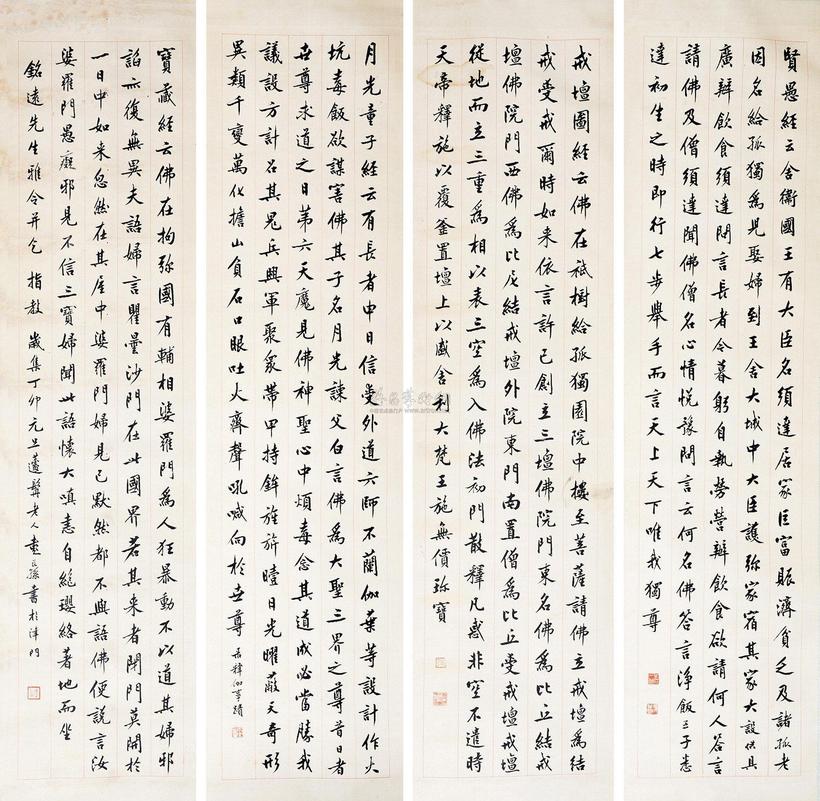 賢愚經云舍衛國王有大臣名須達居家巨富賑濟貧乏及諸孤老
因名給孤獨為兒娶婦到王舍大城中大臣護弥家宿其家大設供具
廣辦飲食須達問言長者今暮躬自執勞營辦飲食欲請何人答言
請佛及僧須達聞佛僧名心情悦豫問言云何名佛答言淨飯王子悉
達初生之時即行七步舉手而言天上天下唯我獨尊
戒壇圖經云佛在祗樹給孤獨園院中樓至菩薩請佛立戒壇為結
戒受戒爾時如来依言許已創立三壇佛院門東名佛為比丘結戒
壇佛院門西佛為比尼結戒壇外院東門南置僧為比丘受戒壇戒壇
従地而立三重為相以表三空為入佛法初門散釋凡惑非空不遣時
天帝釋施以覆釜置壇上以盛舍利大梵王施無價珎寶
月光童子經云有長者申日信受外道六師不蘭伽葉等設計作火
坑毒飯欲謀害佛其子名月光諫父白言佛為大聖三界之尊昔日者
世尊求道之日第六天魔見佛神聖心中煩毒念其道成必當勝我
議設方計召其鬼兵興軍聚衆帶甲持鉾旌旂曀日光曜蔽天奇形
異類千變萬化擔山負石口眼吐火齊聲吼喊向於世尊 右釋伽事蹟
寶藏經云佛在拘弥國有輔相婆羅門為人狂暴動不以道其婦邪
諂亦復無異夫語婦言瞿曇沙門在此國界若其来者閉門莫開於
一日中如来忽然在其屋中婆羅門婦見已默然都不與語佛便說言汝
婆羅門愚癡邪見不信三寶婦聞此語懷大嗔恚自絕瓔絡著地而坐
銘遠先生雅令并乞指教 歲集丁卯元旦 老人 孫書於津門